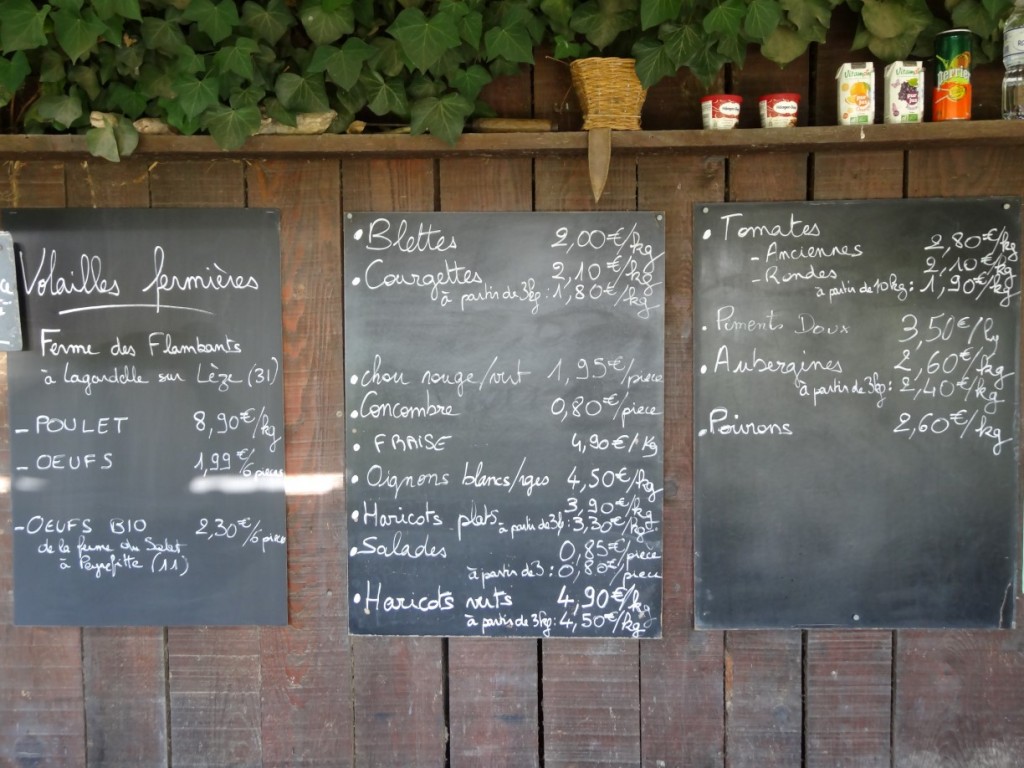 Volailles fermières
Ferme des Flambants
à Lagardelle sur Lèze (31)
- POULET 8,90€/kg
- OEUFS 1,99€/6 pièces
- OEUFS BIO 2,30€/6 pièces
de la ferme du Salet
à Peyrefitte (11)
• Blettes 2,00€/kg
• Courgettes 2,10€/kg
à partir de 3kg : 1,80€/kg
• chou rouge/vert 1,95€/piece
• Concombre 0,80€/piece
• FRAISE 4,90€/Kg
• Oignons blancs/rges 4,50€/kg
• Haricots plats 3,90€/kg
à partir de 3k : 3,30€/kg
• Salades 0,85€/piece
à partir de 3 : 0,80€/piece
• Haricots verts 4,90€/kg
à partir de 3kg : 4,50€/kg
• Tomates
- Anciennes 2,80€/kg
- Rondes 2,10€/kg
à partir de 10kg : 1,90€/kg
• Piments Doux 3,50€/kg
• Aubergines 2,60€/kg
à partir de 3kg : 2,40€/kg
• Poivrons 2,60€/kg
Vitamont
Vitamont
Perrier